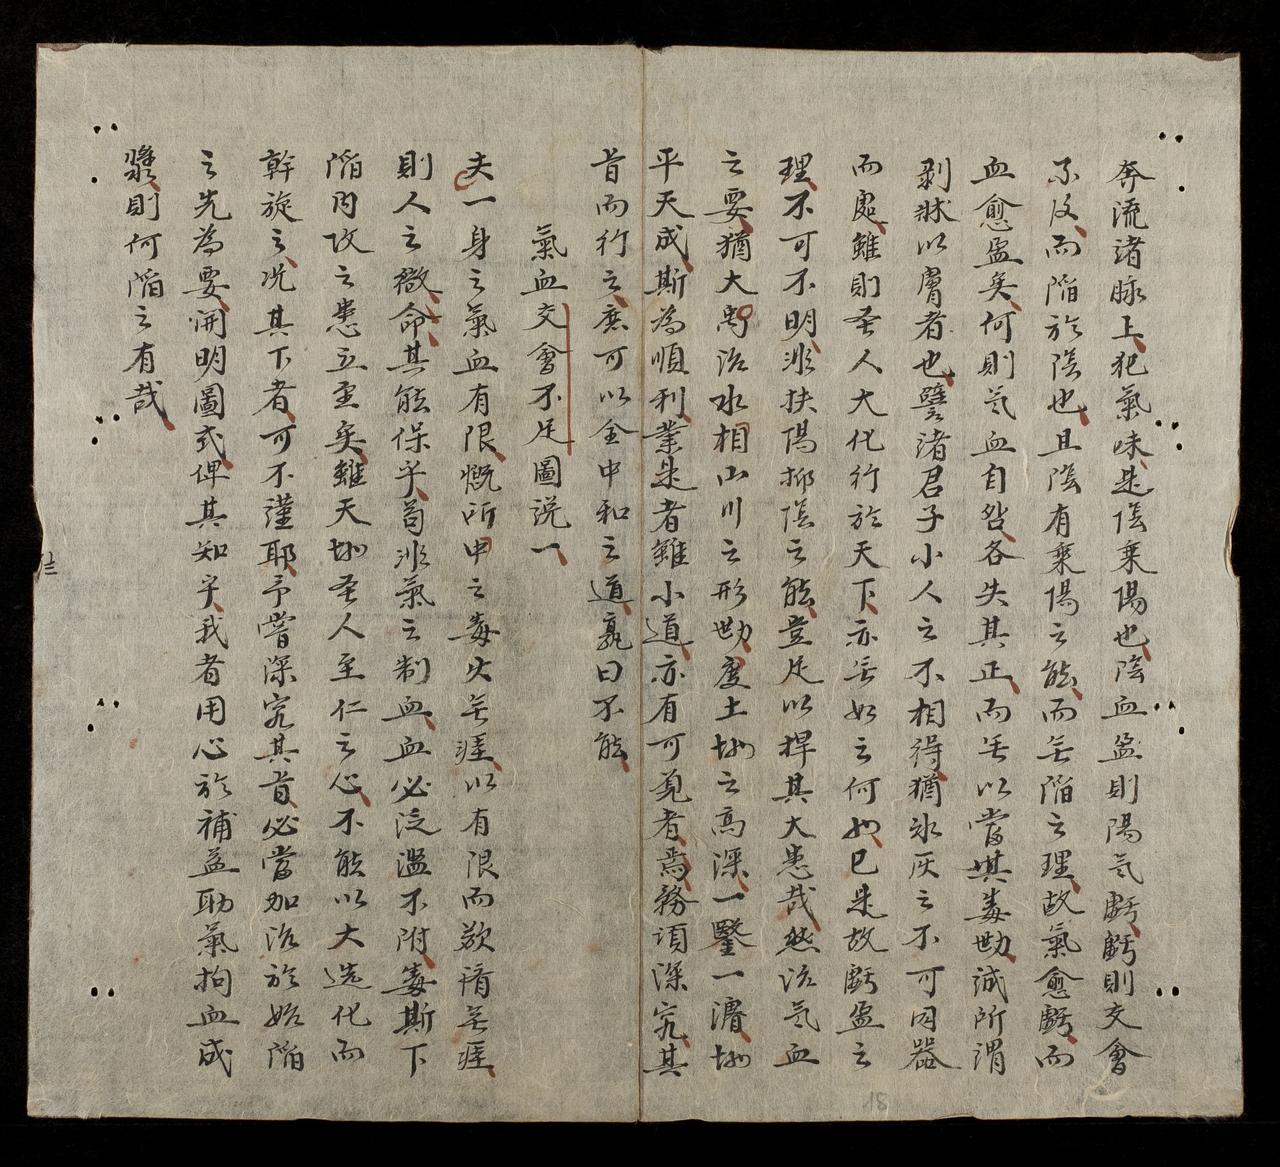 奔流諸脉上犯氣味是陰乗陽也陰血盈則陽气虧虧則交會
不及而陷於陰也且陰有乗陽之能而无陷之理故氣愈虧而
血愈盈矣何則气血自咎各失其正而无以當其毒勢誠所謂
剥牀以膚者也譬諸君子小人之不相得猶氷灰之不可囙器
而處雖則圣人大化行於天下亦无如之何也已是故虧盈之
理不可不明非扶陽抑陰之能豈足以捍其大患哉然治气血
之要猶大禹治水相山川之形勢度土地之高深一鑿一濬地
平天成斯為順利業是者雖小道亦有可覌者焉務須深究其
旨而行之庶可以全中和之道孰曰不能
氣血交會不足圖説一
夫一身之氣血有限慨所中之毒火无涯以有限而欲禦无涯
則人之微命其能保乎苟非氣之制血血必泛濫不附毒斯下
陷内攻之患立至矣雖天地圣人至仁之心不能以大造化而
幹旋之况其下者可不謹耶予嘗深究其旨必當加治於始陷
之先為要開明圖式俾其知乎我者用心於補益助氣拘血成
漿則何陷之有哉
十三
18